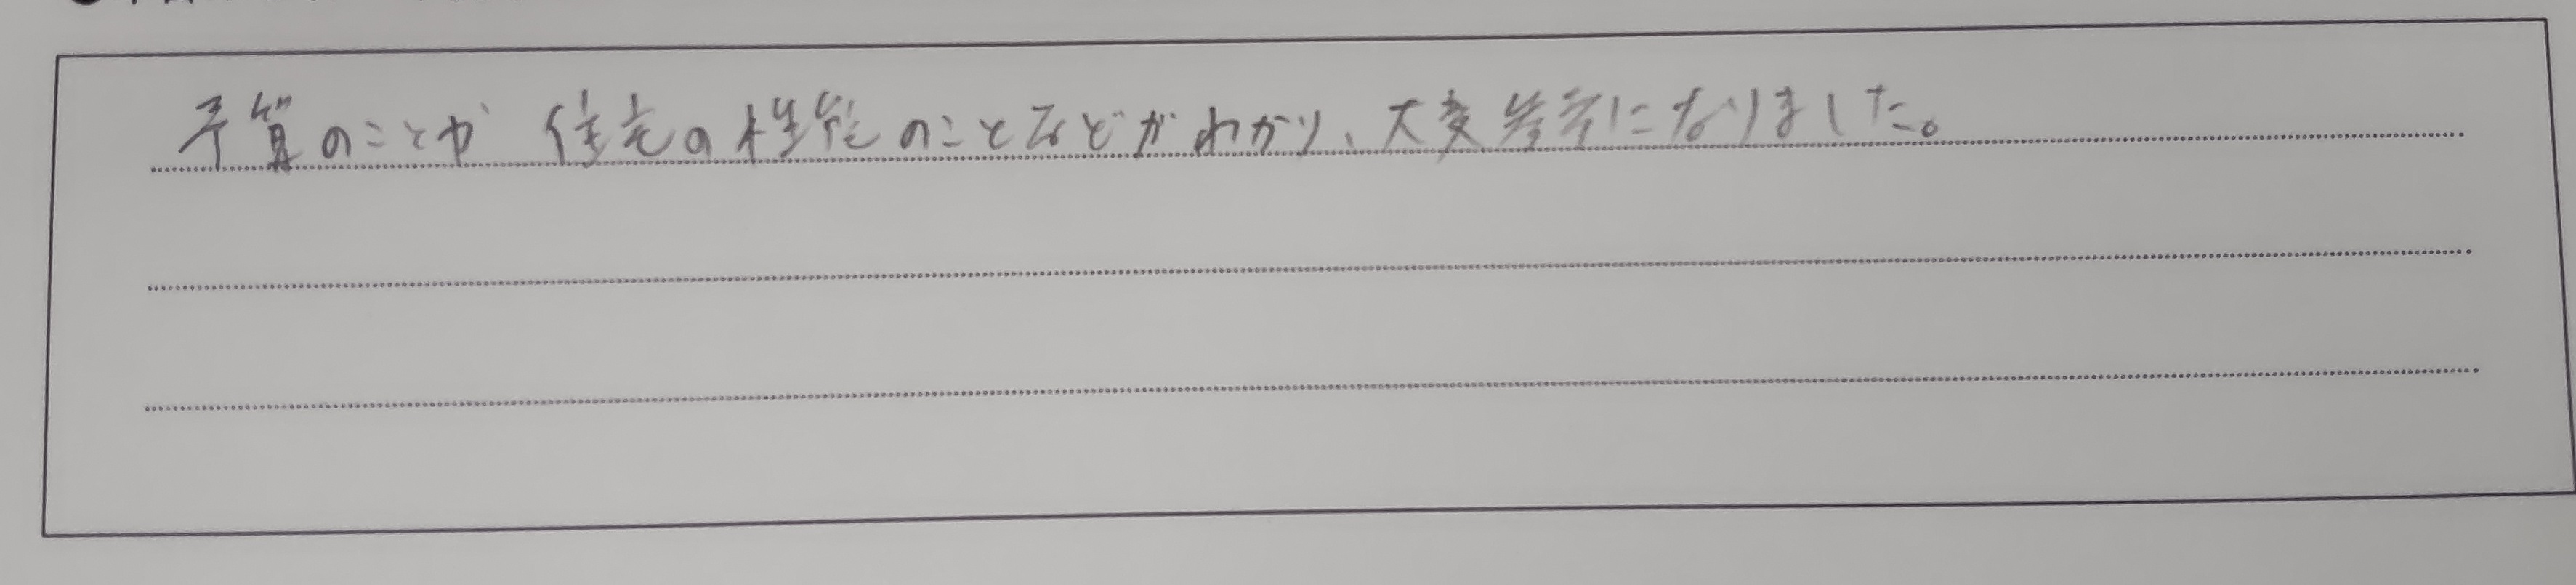 予算のことや 住宅の性能のことなどがわかり、大変参考になりました。